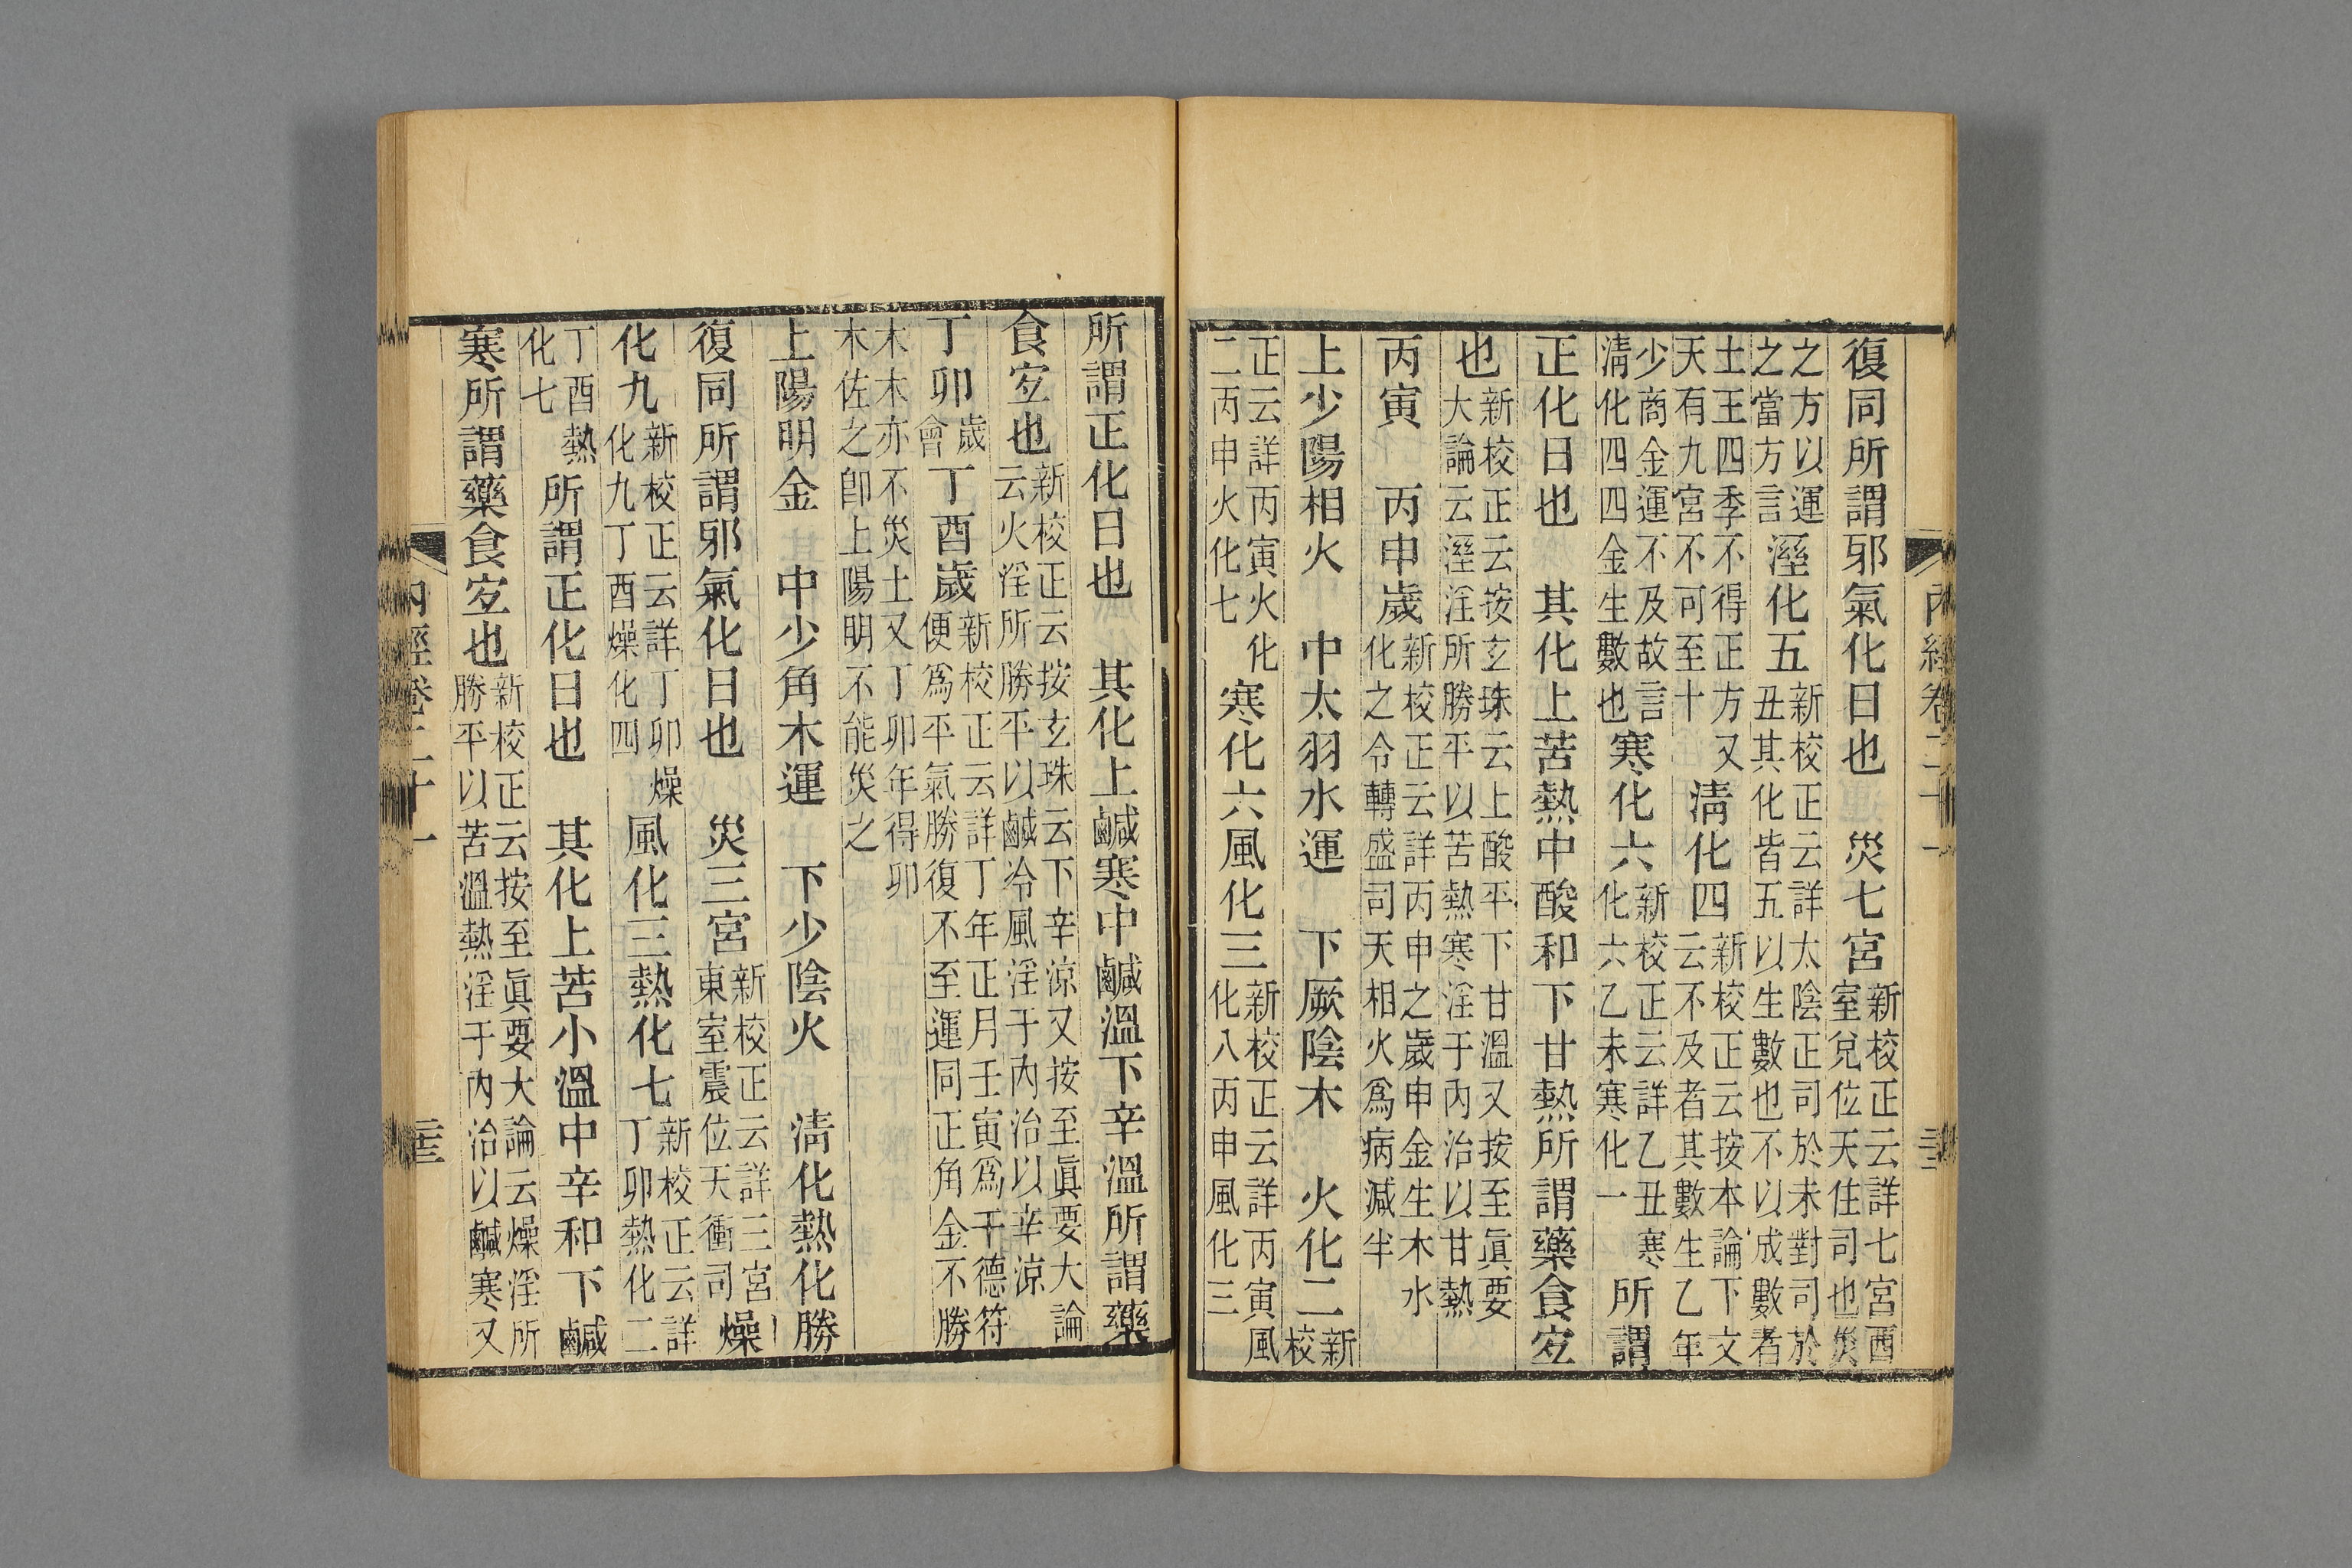 復同所謂邪氣化日也　災七宮新校正云詳七宮酉室兌位天住司也災
之方以運之當方言溼化五新校正云詳太陰正司於未對司於丑其化皆五以生數也不以成數者
土王四季不得正方又天有九宮不可至十清化四新校正云按本論下文云不及者其數生乙年
少商金運不及故言清化四四金生數也寒化六新校正云詳乙丑寒化六乙未寒化一所謂
正化日也　其化上苦熱中酸和下甘熱所謂藥食宐
也新校正云按玄珠云上酸平下甘溫又按至眞要大論云溼淫所勝平以苦熱寒淫于內治以甘熱
丙寅　丙申歲新校正云詳丙申之歲申金生木水化之令轉盛司天相火爲病減半
上少陽相火　中太羽水運　下厥陰木　火化二新校
正云詳丙寅火化二丙申火化七寒化六風化三新校正云詳丙寅風化八丙申風化三
內經卷二十一
所謂正化日也　其化上鹹寒中鹹溫下辛溫所謂藥
食宐也新校正云按玄珠云下辛涼又按至眞要大論云火淫所勝平以鹹冷風淫于內治以辛涼
丁卯歲會丁酉歲新校正云詳丁年正月壬寅爲干德符便爲平氣勝復不至運同正角金不勝
木木亦不災土又丁卯年得卯木佐之卽上陽明不能災之
上陽明金　中少角木運　下少陰火　清化熱化勝
復同所謂邪氣化日也　災三宮新校正云詳三宮東室震位天衝司燥
化九新校正云詳丁卯燥化九丁酉燥化四風化三熱化七新校正云詳丁卯熱化二
丁酉熱化七所謂正化日也　其化上苦小溫中辛和下鹹
寒所謂藥食宐也新校正云按至眞要大論云燥淫所勝平以苦溫熱淫于內治以鹹寒又
內經卷二十一